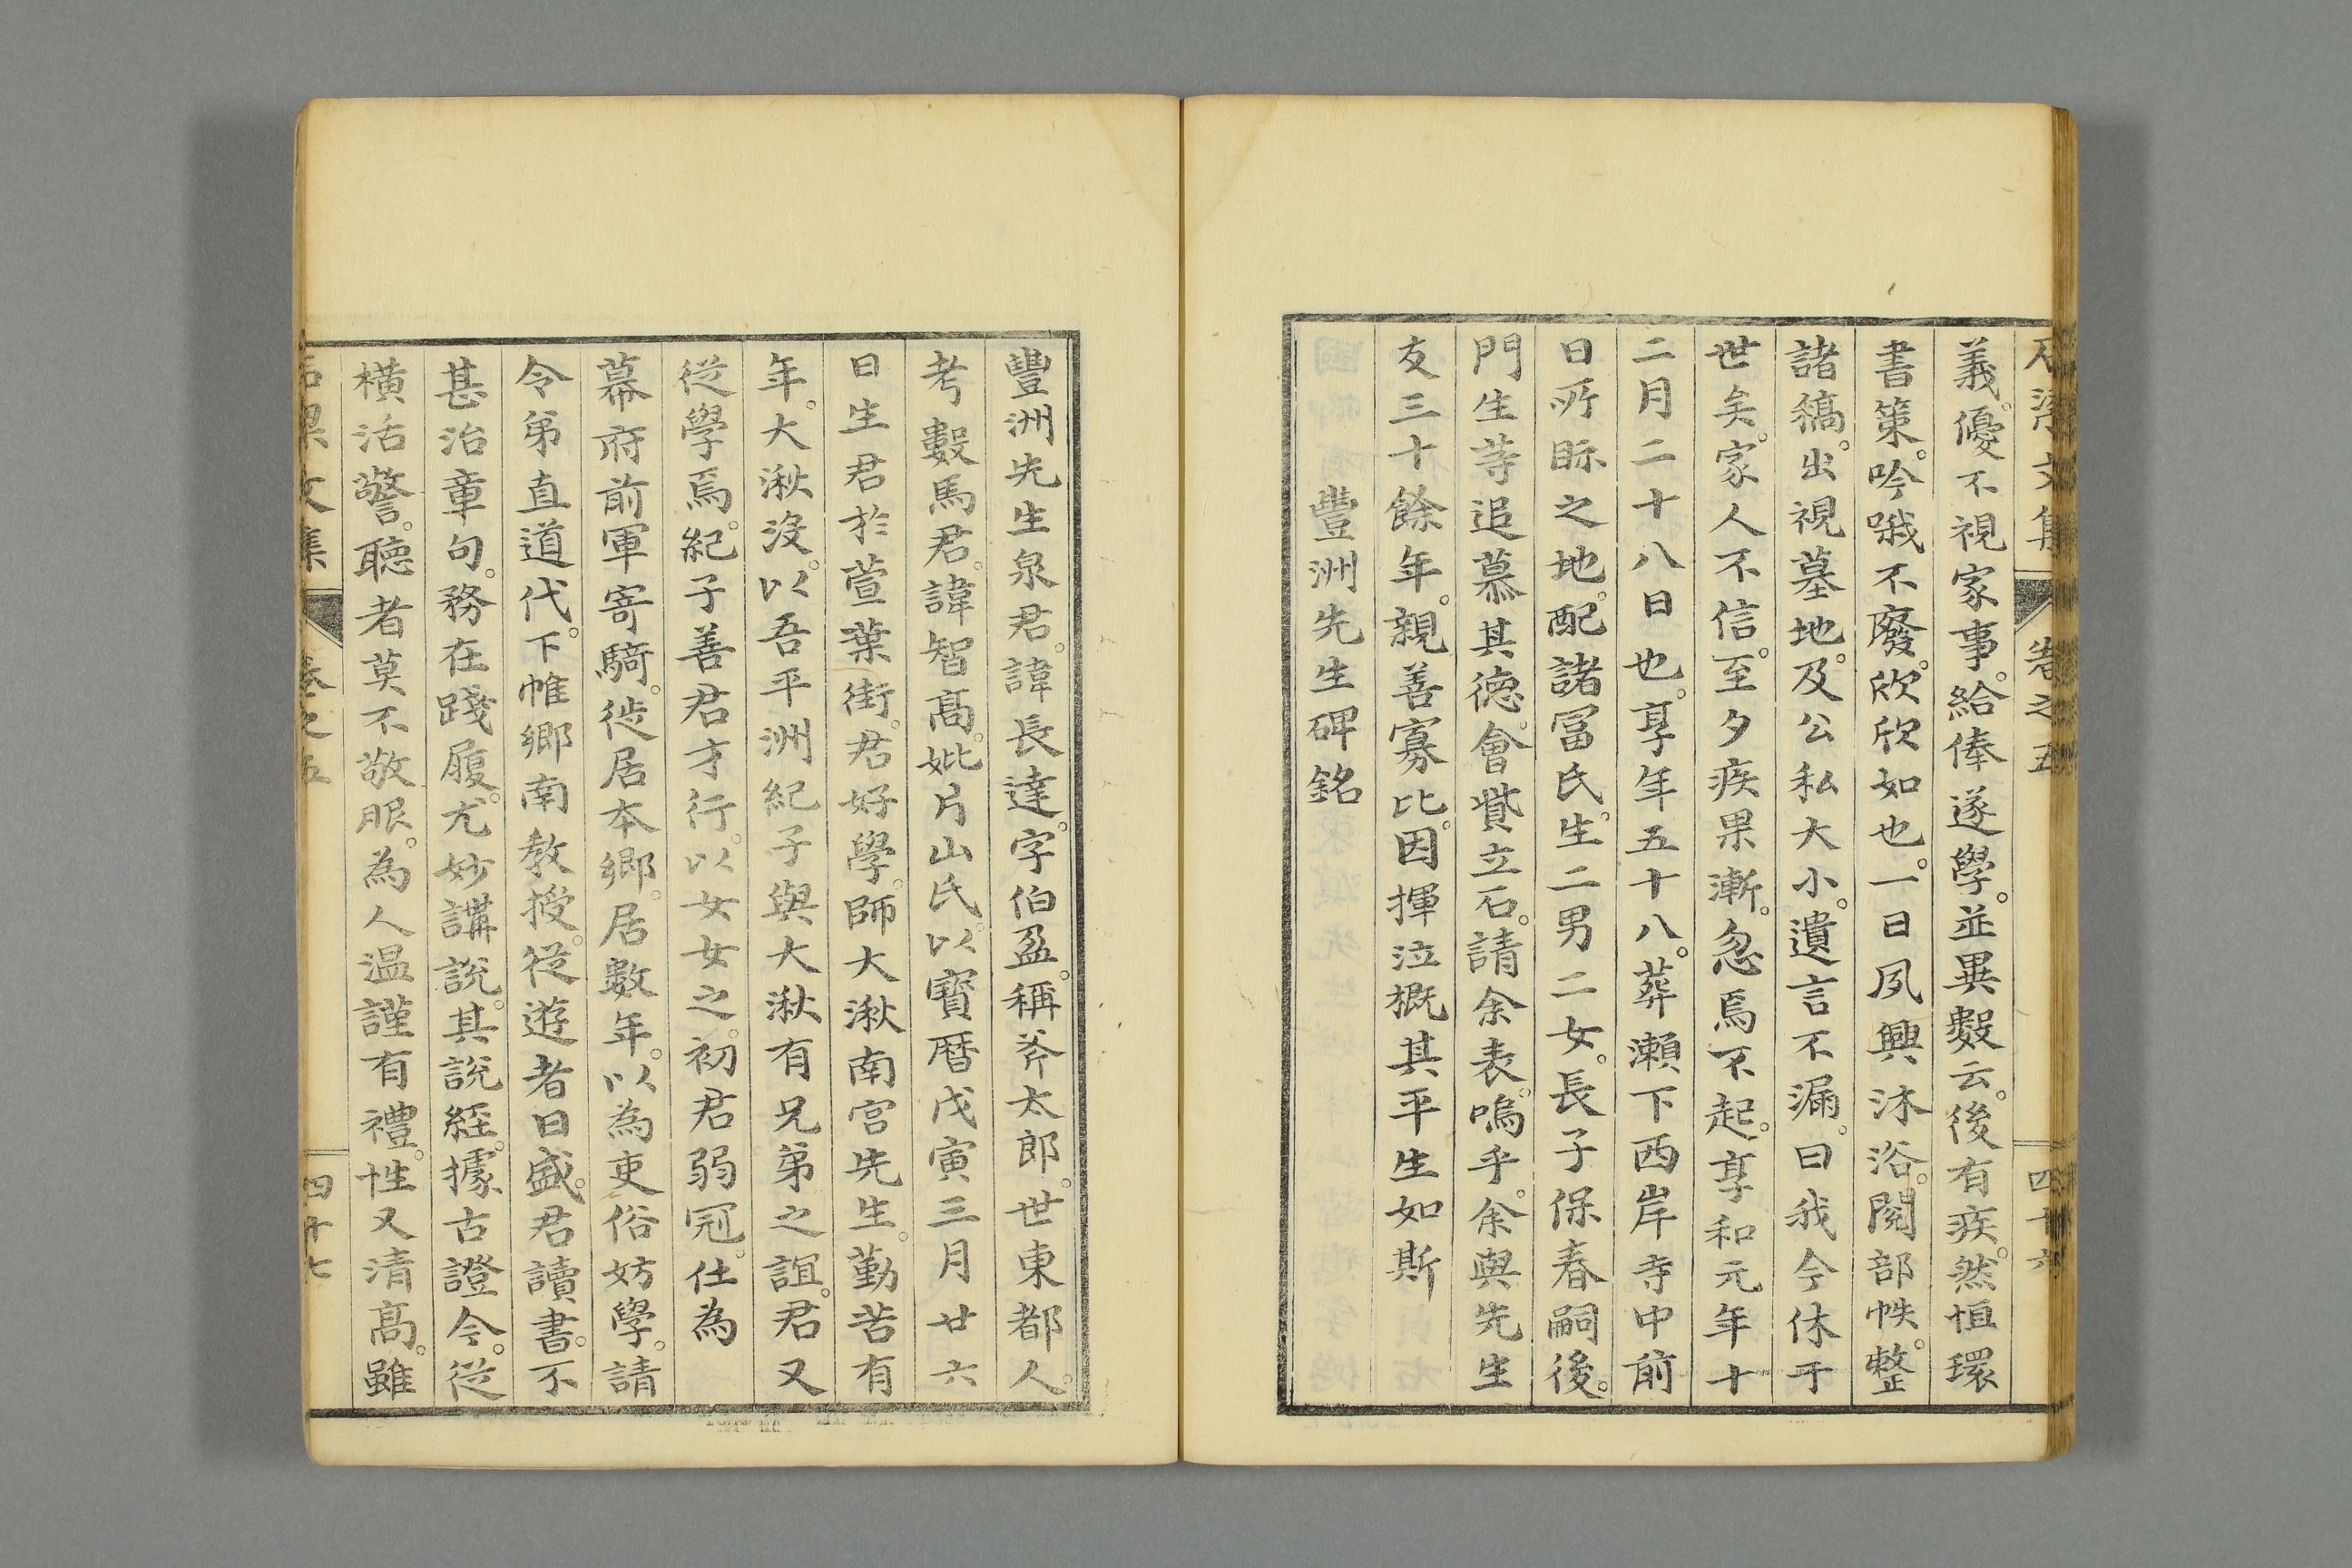 石梁文集 卷之五 四十六
義。優不視家事。給俸遂學。並異數云。後有疾。然恒環
書策。吟哦不廢。欣欣如也。一日夙興沐浴。閱部帙。整
諸稿。出視墓地。及公私大小。遺言不漏。曰我今休于
世矣。家人不信。至夕疾果漸。忽焉不起。享和元年十
二月二十八日也。享年五十八。葬瀨下西岸寺中前
日所眎之地。配諸冨氏。生二男二女。長子保春嗣後。
門生等追慕其德。會貲立石。請余表。嗚乎。余與先生
友三十餘年。親善寡比。因揮泣概其平生如斯
豐洲先生碑銘
豐洲先生泉君。諱長達。字伯盈。稱斧太郎。世東都人。
考數馬君。諱智髙。妣片山氏。以寶曆戊寅三月廿六
日生君於萱葉街。君好學。師大湫南宮先生。勤苦有
年。大湫沒。以吾平洲紀子與大湫有兄弟之誼。君又
從學焉。紀子善君才行。以女女之。初君弱冠。仕為
幕府前軍寄騎。徙居本鄉。居數年。以為吏俗妨學。請
令弟直道代。下帷鄉南教授。從遊者日盛。君讀書。不
甚治章句。務在踐履。尤妙講說。其說經。據古證今。從
橫活警。聽者莫不敬服。為人温謹有禮。性又清髙。雖
石梁文集 卷之五 四十七